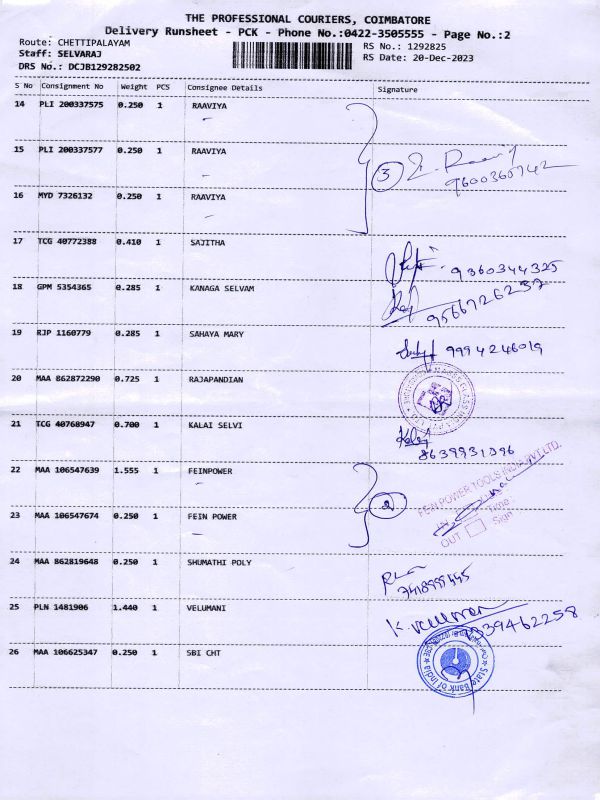 THE PROFESSIONAL COURIERS, COIMBATORE
Delivery Runsheet - PCK - Phone No.:0422-3505555 - Page No.:2
Route: CHETTIPALAYAM
RS No.: 1292825
Staff: SELVARAJ
RS Date: 20-Dec-2023
DRS No.: DCJB129282502
S No Consignment No Weight PCS Consignee Details Signature
14 PLI 200337575 0.250 1 RAAVIYA
15 PLI 200337577 0.250 1 RAAVIYA
3
9600360742
16 MYD 7326132 0.250 1 RAAVIYA
17 TCG 40772388 0.410 1 SAJITHA
9360344325
18 GPM 5354365 0.285 1 KANAGA SELVAM
9566726232
19 RJP 1160779 0.285 1 SAHAYA MARY
9994246019
20 MAA 862872290 0.725 1 RAJAPANDIAN
21 TCG 40768947 0.700 1 KALAI SELVI
8639931396
22 MAA 106547639 1.555 1 FEINPOWER
FEIN POWER TOOLS INDIA PVT LTD.
2
Time
OUT Sign
23 MAA 106547674 0.250 1 FEIN POWER
24 MAA 862819648 0.250 1 SHUMATHI POLY
25 PLN 1481906 1.440 1 VELUMANI
26 MAA 106625347 0.250 1 SBI CHT
State Bank of India